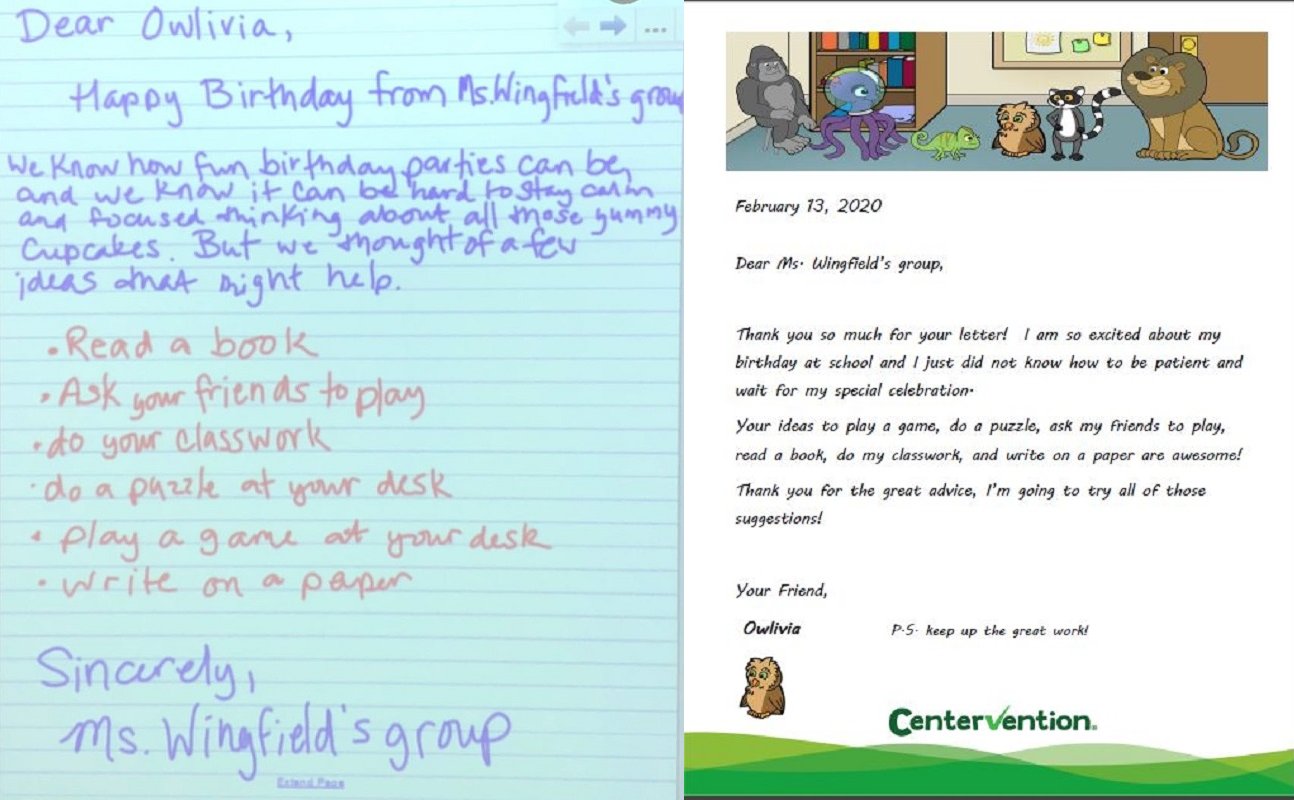 Dear Owlivia,
Happy Birthday from Ms. Wingfield's group
We know how fun birthday parties can be,
and we know it can be hard to stay calm
and focused thinking about all those yummy
Cupcakes. But we thought of a few
ideas that might help.
• Read a book
• Ask your friends to play
• do your classwork
• do a puzzle at your desk
• play a game at your desk
• write on a paper
Sincerely,
Ms. Wingfield's group
Extend Page
February 13, 2020
Dear Ms. Wingfield's group,
Thank you so much for your letter! I am so excited about my
birthday at school and I just did not know how to be patient and
wait for my special celebration.
Your ideas to play a game, do a puzzle, ask my friends to play,
read a book, do my classwork, and write on a paper are awesome!
Thank you for the great advice, I'm going to try all of those
suggestions!
Your Friend,
Owlivia
P.S. keep up the great work!
Centervention®